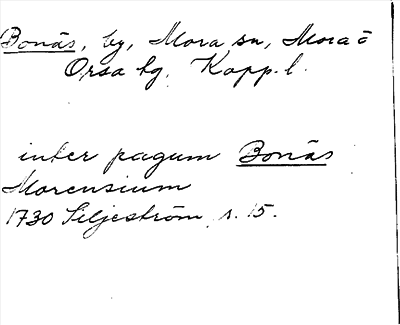 Bonäs, by, Mora sn, Mora o
Orsa tg, Kopp. l.
inter pagum Bonäs
Morensium
1730 Siljeström, s. 15.